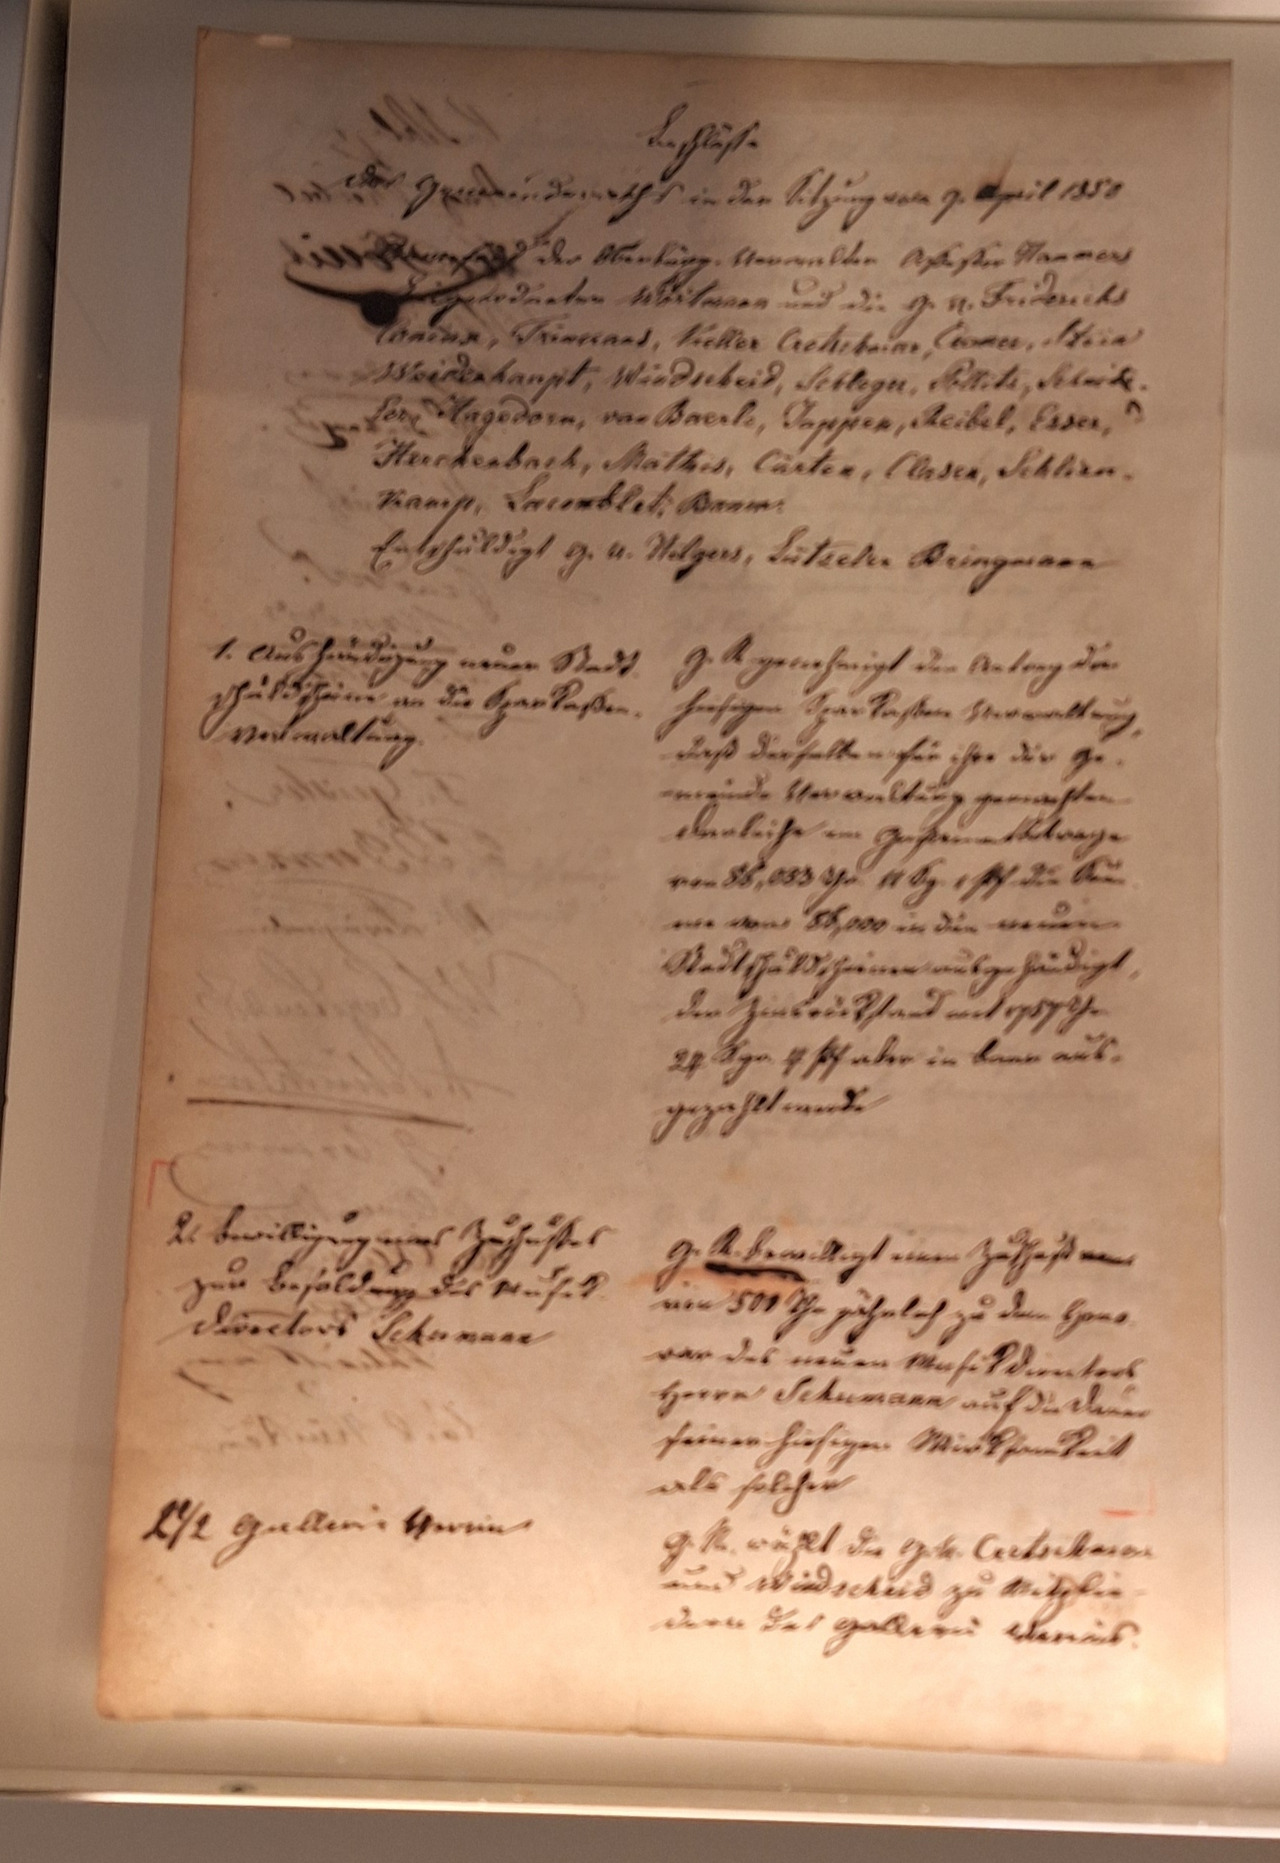 Beschlüsse
des Gemeinderaths in der Sitzung vom 9. April 1850
der Oberbürg. Verwalter Assessor Hammers
Beigeordneten Wortmann und die G. V. Friderichs
Trimmans, Keller, Cretschmar, Cramer, Stein
Weidenhaupt, Windscheid, Schleger, Schnitz-
ler, Hagedorn, van Baerle, Jappen, Reibel, Esser,
Herchenbach, Mathes, Cürten, Clasen, Schlien-
kamp, Lacomblet, Baum.
Entschuldigt G. V. Hilgers, Lützeler Bringmann
1. Aushändigung neuer Stadt
schuldscheine an die Sparkassen-
verwaltung.
G. R. genehmigt den Antrag der
hiesigen Sparkassen Verwaltung,
daß derselben für ihre der Ge-
meinde Verwaltung gemachten
Darleihe im Gesammtbetrage
von 86,033 Thr 11 Sg 1 Pf die Sum
me von 86,000 in den neuen
Stadtschuldscheinen ausgehändigt,
der Zinsrückstand mit 1757 Thr
24 Sgr 4 Pf aber in baar aus-
gezahlt werde
2. Bewilligung eines Zuschusses
zur Besoldung des Musik
directors Schumann
G. R. bewilligt einen Zuschuß
von 500 Thr jährlich zu dem Hono
rar des neuen Musikdirectors
Herrn Schumann auf die Dauer
seiner hiesigen Wirksamkeit
als solcher
2 1/2 Gallerie Verein
G. R. wählt die G. V. Cretschmar
und Windscheid zu Mitglie-
dern des Gallerie Vereins.